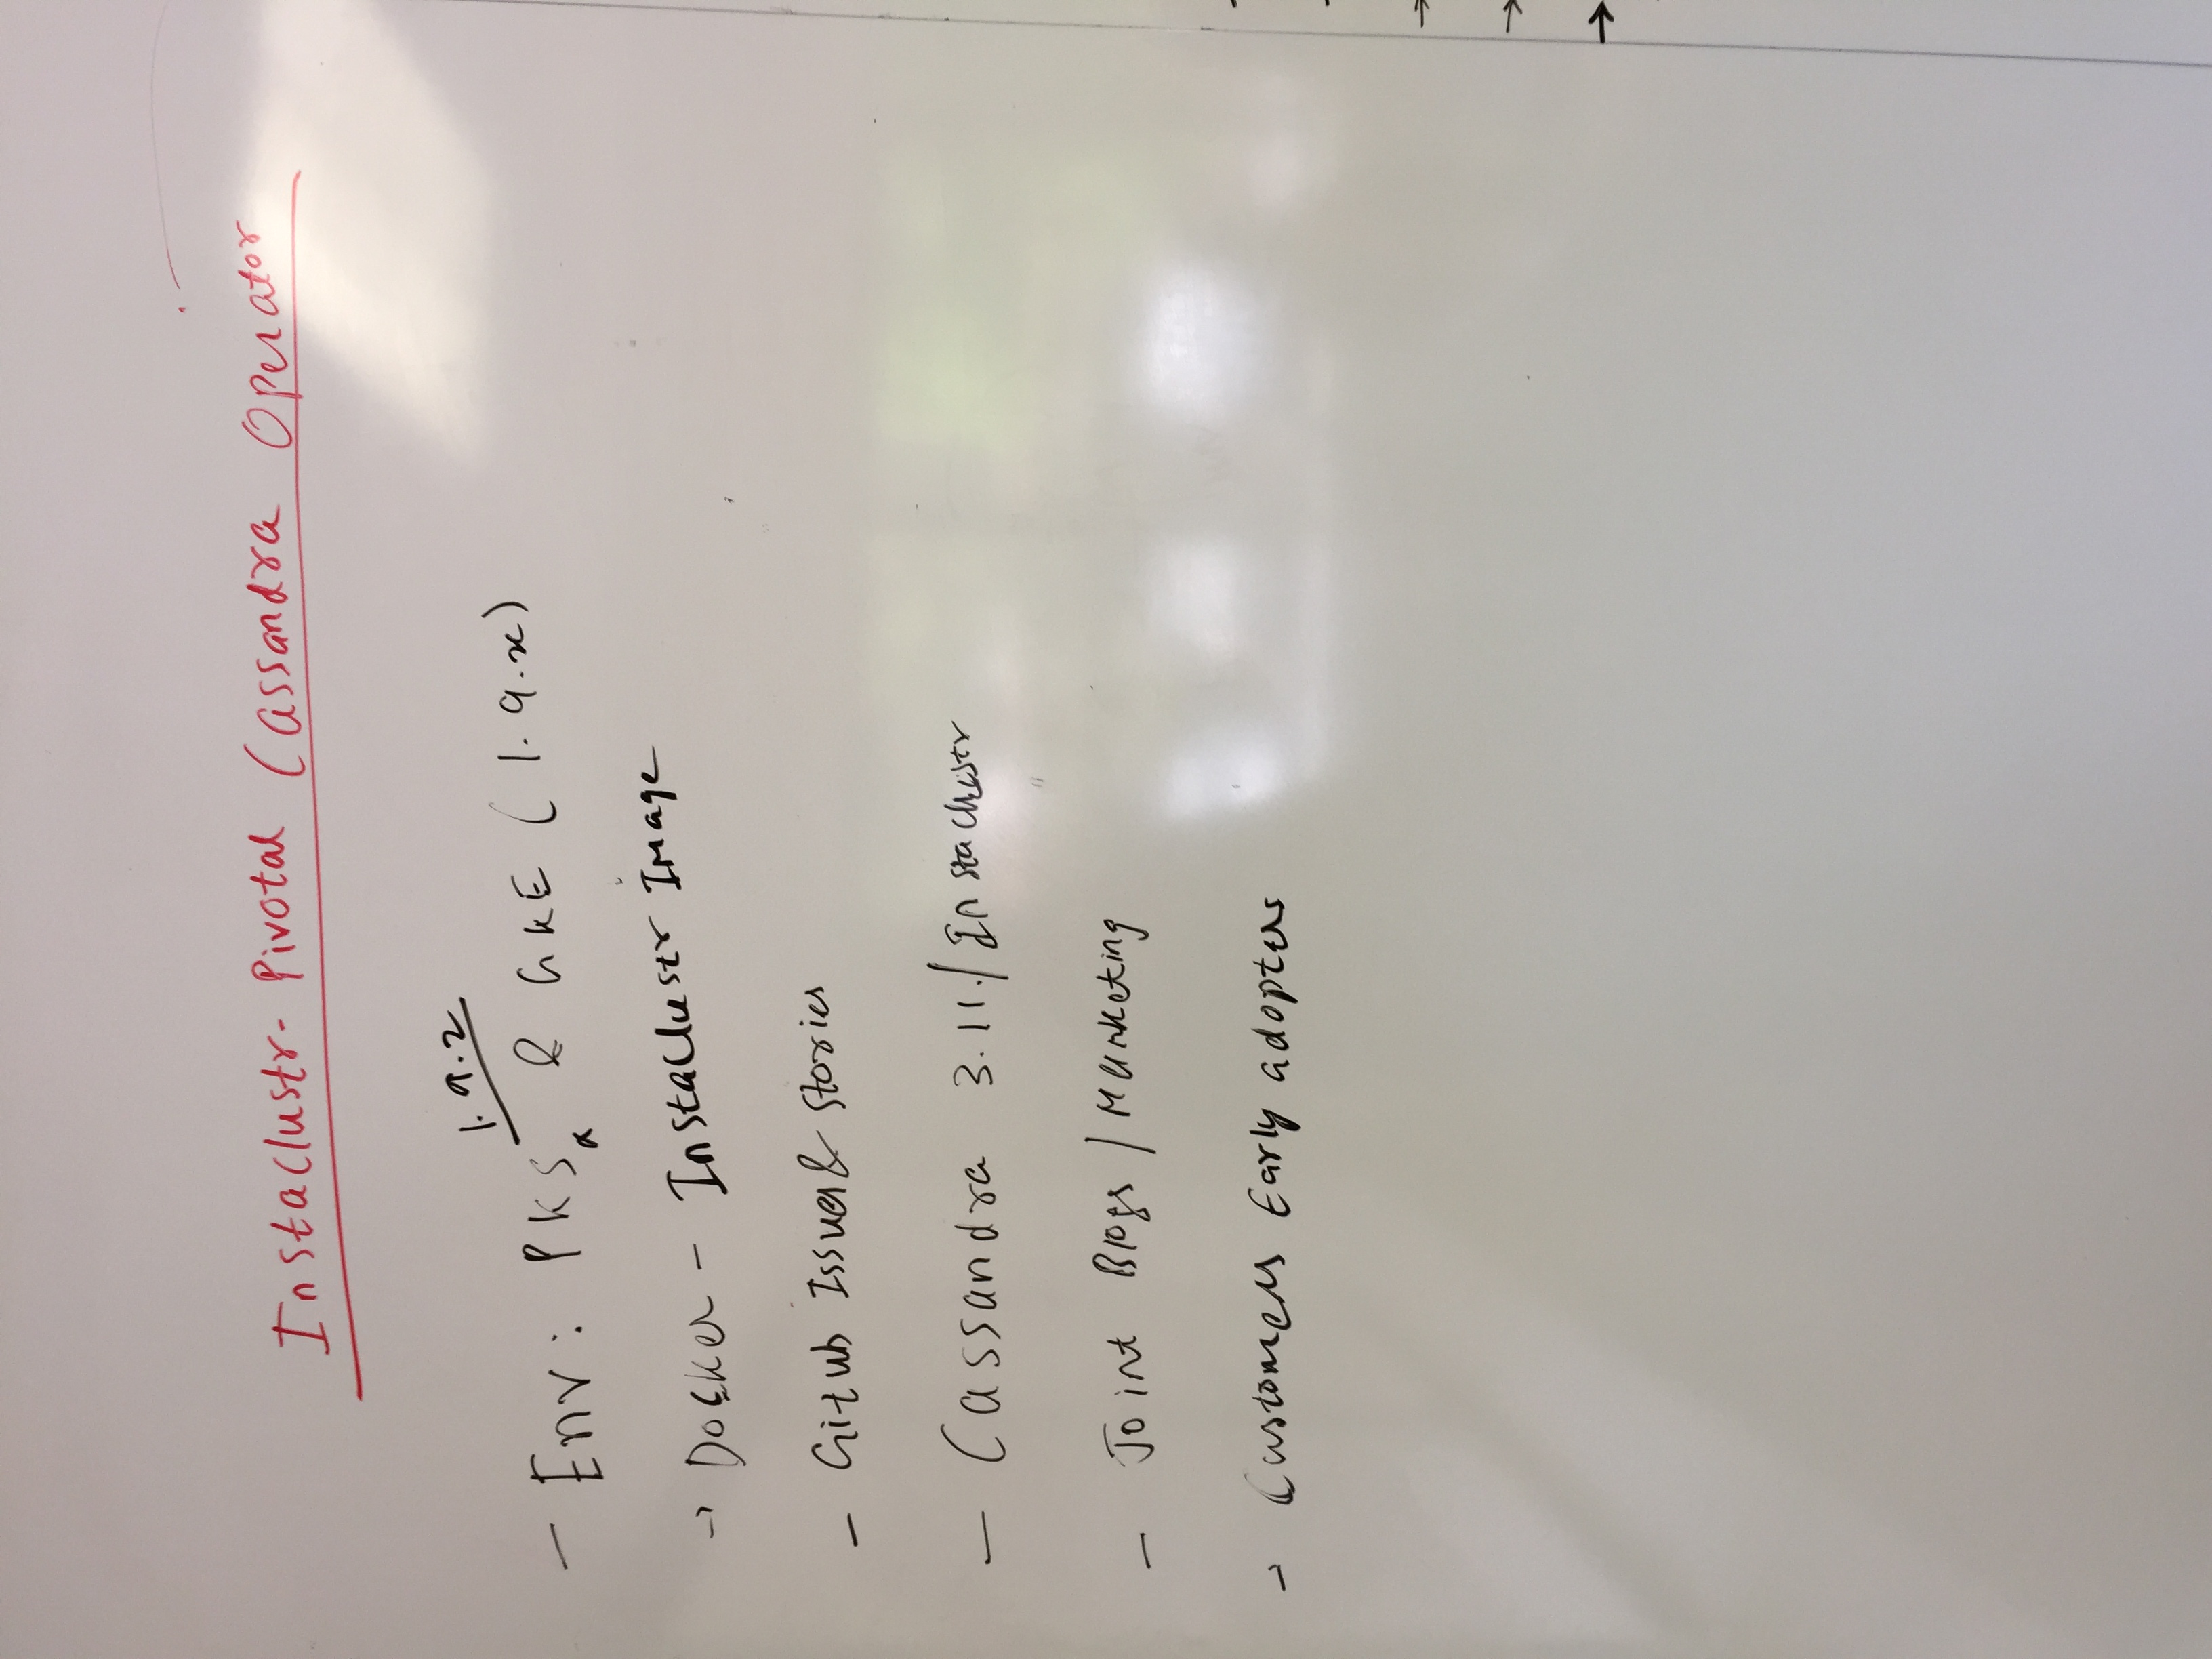 Instaclustr- Pivotal Cassandra Operator
1.9.2
- Env: PKS & GKE (1.9.x)
→ Docker - Instaclustr Image
- Gitub Issues & stories
- Cassandra 3.11./Instaclustr
- Joint Blogs / Marketing
→ Customers Early adopters